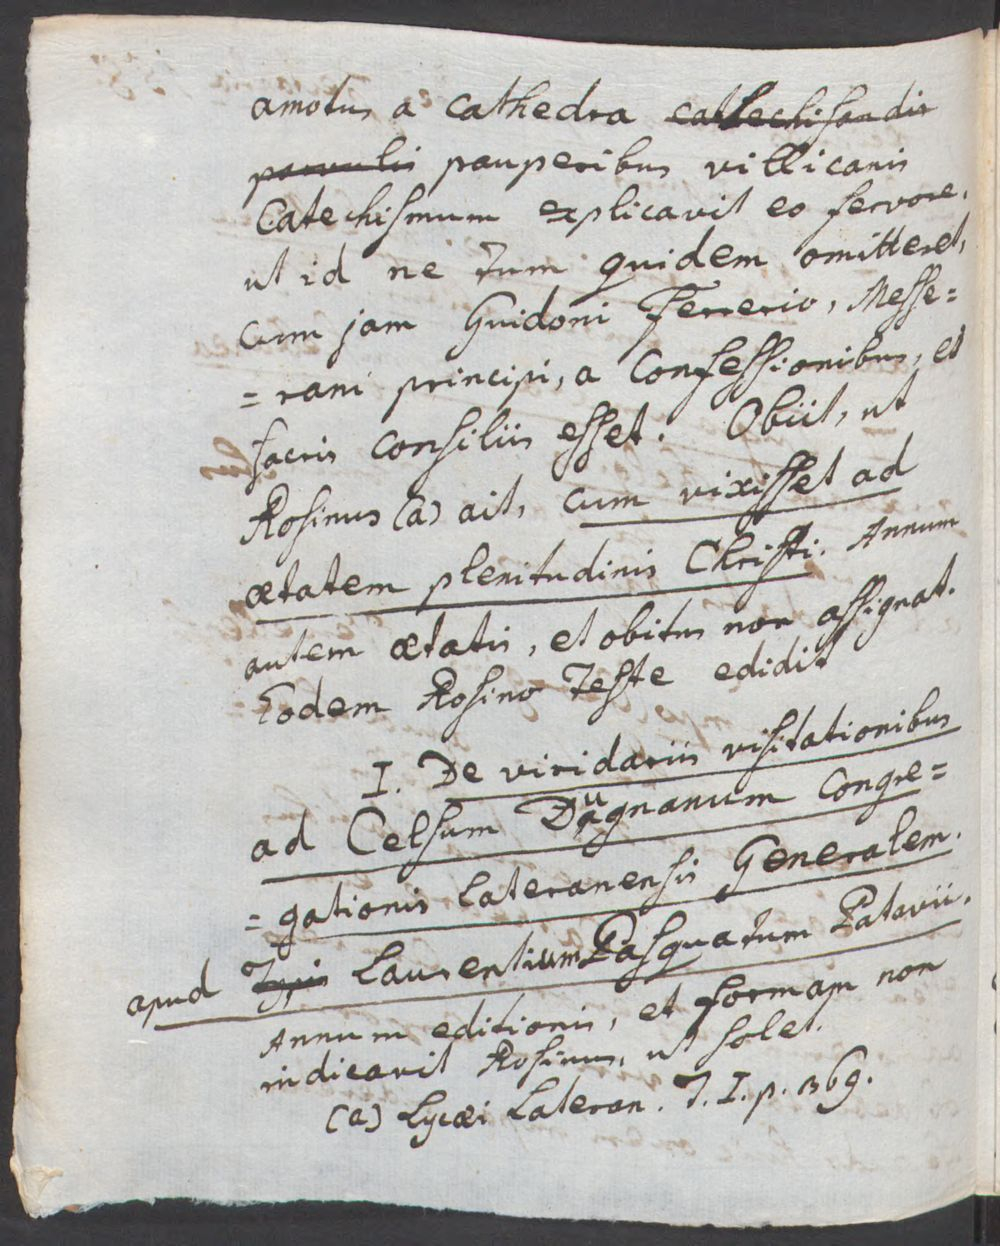 amotus a cathedra cathechisandis
parvulis pauperibus villicanis
Catechismum explicavit eo fervore,
ut id ne tum quidem omitteret,
cum jam Guidoni Ferrerio, Messe=
=rani principi, a Confessionibus, et
sacris consiliis esset. Obiit, ut
Rosinus (a) ait, cum vixisset ad
ætatem plenitudinis Christi. Annum
autem ætatis, et obitus non assignat.
Eodem Rosino Teste edidit
I. De viridariis visitationibus
ad Celsum Dugnanum Congre=
=gationis Lateranensis Generalem.
apud Typis Laurentium Pasquatum Patavii.
Annum editionis, et formam non
indicavit Rosinus, ut solet.
(a) Lycæi Lateran. T. I. p. 369.